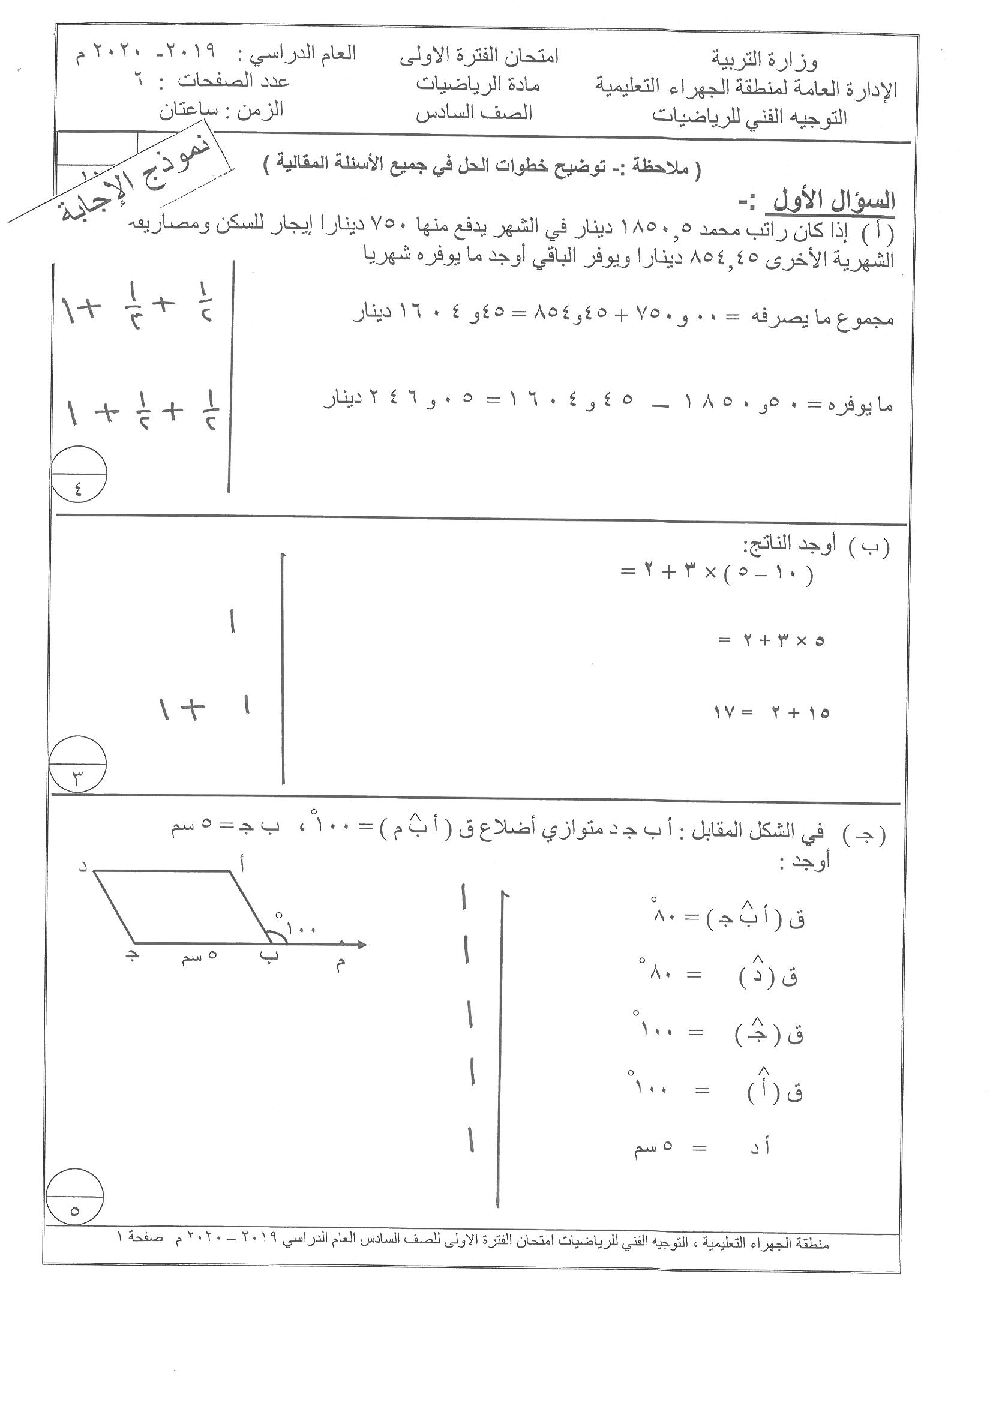 وزارة التربية
امتحان الفترة الاولى
العام الدراسي : ٢٠١٩- ٢٠٢٠ م
الإدارة العامة لمنطقة الجهراء التعليمية
مادة الرياضيات
عدد الصفحات : ٦
التوجيه الفني للرياضيات
الصف السادس
الزمن : ساعتان
نموذج الإجابة
( ملاحظة :- توضيح خطوات الحل في جميع الأسئلة المقالية )
السؤال الأول :-
( أ ) إذا كان راتب محمد ١٨٥٠,٥ دينار في الشهر يدفع منها ٧٥٠ دينارا إيجار للسكن ومصاريفه
الشهرية الأخرى ٨٥٤,٤٥ دينارا ويوفر الباقي أوجد ما يوفره شهريا
مجموع ما يصرفه = ٠٠ و ٧٥٠ + ٤٥ و ٨٥٤ = ٤٥ و ١٦٠٤ دينار
١/٢ + ١/٢ + ١
ما يوفره = ٥٠ و ١٨٥٠ – ٤٥ و ١٦٠٤ = ٠٥ و ٢٤٦ دينار
١/٢ + ١/٢ + ١
٤
( ب ) أوجد الناتج:
( ١٠ – ٥ ) × ٣ + ٢ =
٥ × ٣ + ٢ =
١
١٥ + ٢ = ١٧
١ + ١
٣
( جـ ) في الشكل المقابل : أ ب جـ د متوازي أضلاع ق ( أ ب̂ م ) = ١٠٠° ، ب جـ = ٥ سم
أوجد :
د
أ
١٠٠°
جـ
٥ سم
ب
م
ق ( أ ب̂ جـ ) = ٨٠° ١
ق ( د̂ ) = ٨٠° ١
ق ( جـ̂ ) = ١٠٠° ١
ق ( أ̂ ) = ١٠٠° ١
أ د = ٥ سم ١
٥
منطقة الجهراء التعليمية ، التوجيه الفني للرياضيات امتحان الفترة الاولى للصف السادس العام الدراسي ٢٠١٩ – ٢٠٢٠ م صفحة ١